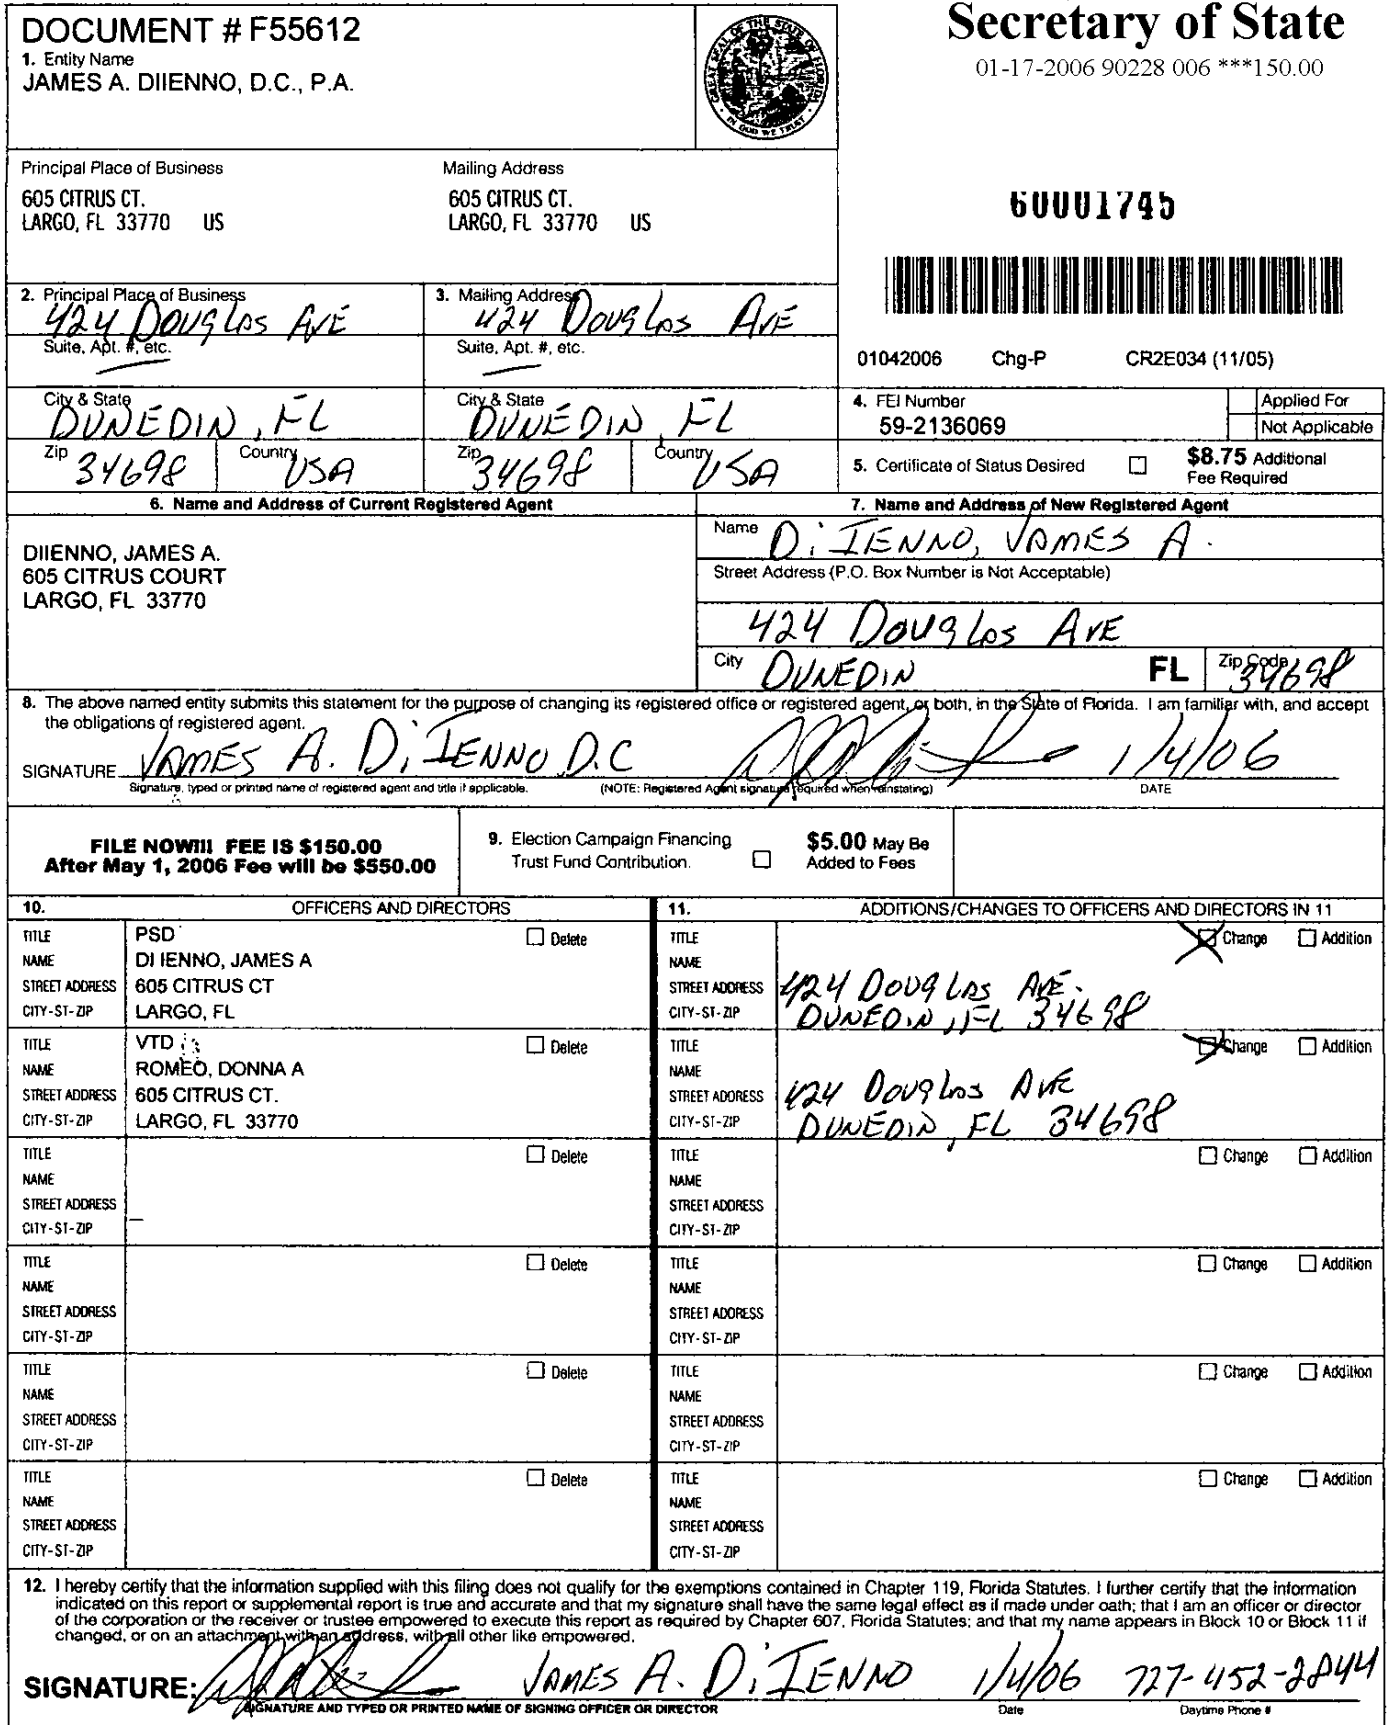 DOCUMENT # F55612
1. Entity Name
JAMES A. DIIENNO, D.C., P.A.
GREAT SEAL OF THE STATE OF FLORIDA
IN GOD WE TRUST
Secretary of State
01-17-2006 90228 006 ***150.00
Principal Place of Business
605 CITRUS CT.
LARGO, FL 33770 US
Mailing Address
605 CITRUS CT.
LARGO, FL 33770 US
60001745
2. Principal Place of Business
424 Douglas AVE
Suite, Apt. #, etc.
City & State
DUNEDIN, FL
Zip 34698 Country USA
3. Mailing Address
424 Douglas AVE
Suite, Apt. #, etc.
City & State
DUNEDIN, FL
Zip 34698 Country USA
01042006 Chg-P CR2E034 (11/05)
4. FEI Number
59-2136069
Applied For
Not Applicable
5. Certificate of Status Desired
$8.75 Additional
Fee Required
6. Name and Address of Current Registered Agent
DIIENNO, JAMES A.
605 CITRUS COURT
LARGO, FL 33770
7. Name and Address of New Registered Agent
Name Di IENNO, JAMES A.
Street Address (P.O. Box Number is Not Acceptable)
424 Douglas AVE
City DUNEDIN FL Zip Code 34698
8. The above named entity submits this statement for the purpose of changing its registered office or registered agent, or both, in the State of Florida. I am familiar with, and accept
the obligations of registered agent.
SIGNATURE JAMES A. Di IENNO D.C 1/4/06
Signature, typed or printed name of registered agent and title if applicable. (NOTE: Registered Agent signature required when reinstating) DATE
FILE NOW!!! FEE IS $150.00
After May 1, 2006 Fee will be $550.00
9. Election Campaign Financing
Trust Fund Contribution.
$5.00 May Be
Added to Fees
10. OFFICERS AND DIRECTORS
TITLE PSD Delete
NAME DI IENNO, JAMES A
STREET ADDRESS 605 CITRUS CT
CITY-ST-ZIP LARGO, FL
TITLE VTD Delete
NAME ROMEO, DONNA A
STREET ADDRESS 605 CITRUS CT.
CITY-ST-ZIP LARGO, FL 33770
TITLE Delete
NAME
STREET ADDRESS
CITY-ST-ZIP
TITLE Delete
NAME
STREET ADDRESS
CITY-ST-ZIP
TITLE Delete
NAME
STREET ADDRESS
CITY-ST-ZIP
TITLE Delete
NAME
STREET ADDRESS
CITY-ST-ZIP
11. ADDITIONS/CHANGES TO OFFICERS AND DIRECTORS IN 11
TITLE Change Addition
NAME
STREET ADDRESS 424 Douglas AVE.
CITY-ST-ZIP DUNEDIN, FL 34698
TITLE Change Addition
NAME
STREET ADDRESS 424 Douglas AVE
CITY-ST-ZIP DUNEDIN, FL 34698
TITLE Change Addition
NAME
STREET ADDRESS
CITY-ST-ZIP
TITLE Change Addition
NAME
STREET ADDRESS
CITY-ST-ZIP
TITLE Change Addition
NAME
STREET ADDRESS
CITY-ST-ZIP
TITLE Change Addition
NAME
STREET ADDRESS
CITY-ST-ZIP
12. I hereby certify that the information supplied with this filing does not qualify for the exemptions contained in Chapter 119, Florida Statutes. I further certify that the information
indicated on this report or supplemental report is true and accurate and that my signature shall have the same legal effect as if made under oath; that I am an officer or director
of the corporation or the receiver or trustee empowered to execute this report as required by Chapter 607, Florida Statutes; and that my name appears in Block 10 or Block 11 if
changed, or on an attachment with an address, with all other like empowered.
SIGNATURE: JAMES A. Di IENNO 1/4/06 727-452-2844
SIGNATURE AND TYPED OR PRINTED NAME OF SIGNING OFFICER OR DIRECTOR Date Daytime Phone #